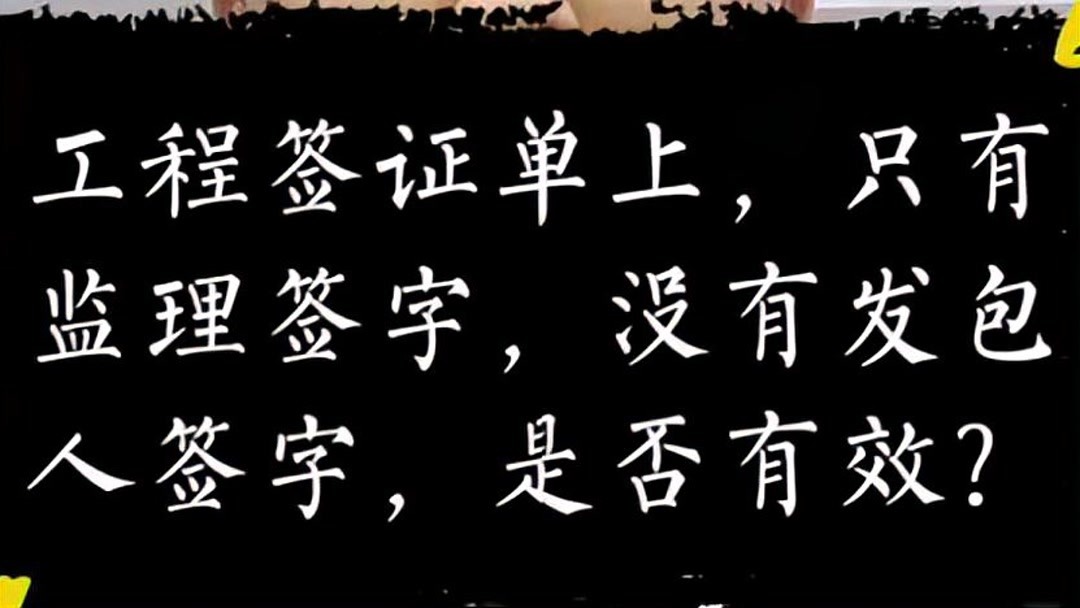 工程签证单上，只有
监理签字，没有发包
人签字，是否有效？